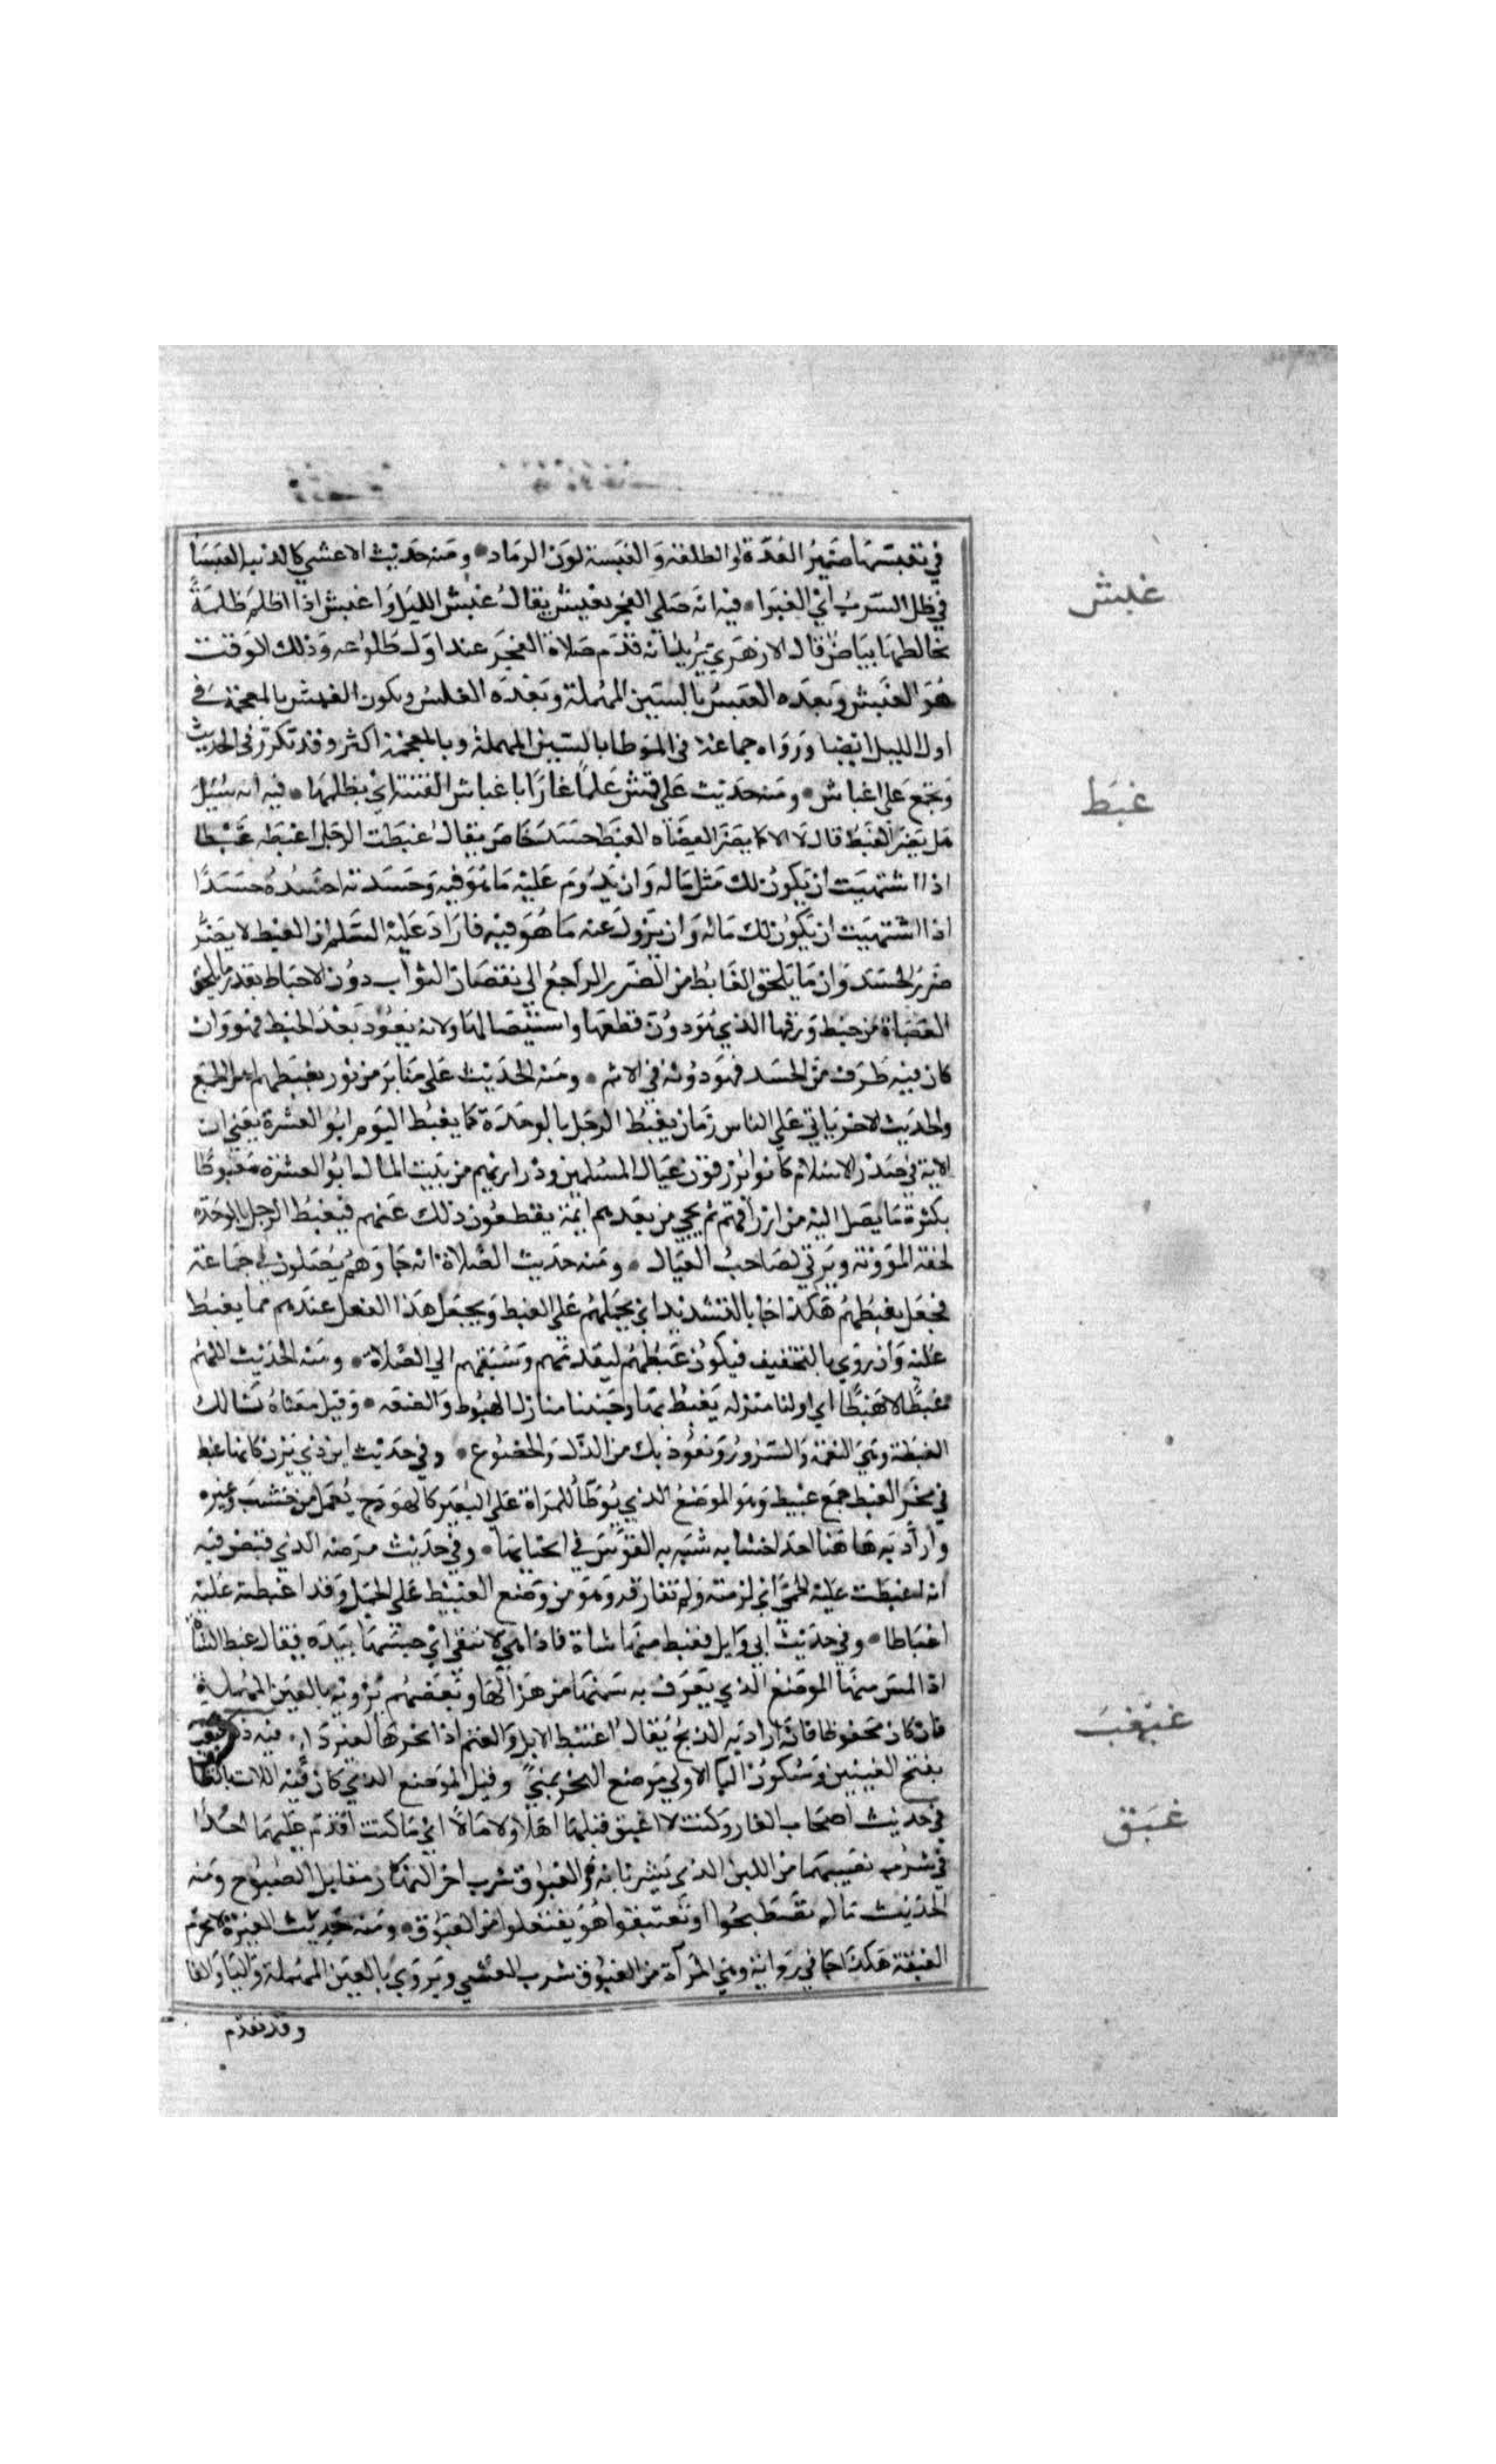 في تغبسها ضمير الغدرة او الطلعة والغبسة لون الرماد ومنه حديث الاعشي كالذئبة الغبسا
في ظل السرب اي الغبرا فيه انه صلى الفجر بغبش يقال غبش الليل واغبش اذا اظلم ظلمة
غبش
يخالطها بياض قال الازهري يريد انه قدم صلاة الفجر عند اول طلوعه وذلك الوقت
هو الغبش وبعده الغبس بالسين المهملة وبعده الغلس ويكون الغبش بالمعجمة في
اول الليل ايضا ورواه جماعة في الموطا بالسين المهملة وبالمعجمة اكثر وقد تكرر في الحديث
ويجمع على اغباش ومنه حديث علي قمش علما غارا باغباش الفتنة اي بظلمها فيه انه سئل
غبط
هل يضر الغبط قال لا الا كما يضر العضاه الخبط الغبط حسد خاص يقال غبطت الرجل اغبطه غبطا
اذا اشتهيت ان يكون لك مثل ماله وان يدوم عليه ما هو فيه وحسدته احسده حسدا
اذا اشتهيت ان يكون لك ماله وان يزول عنه ما هو فيه فاراد عليه السلام ان الغبط لا يضر
ضرر الحسد وان ما يلحق الغابط من الضرر الراجع الى نقصان الثواب دون الاحباط بقدر ما يلحق
العضاة من خبط ورقها الذي هو دون قطعها واستئصالها ولانه يعود بعد الخبط فهو وان
كان فيه طرف من الحسد فهو دونه في الاثم ومنه الحديث على منابر من نور يغبطهم اهل الجمع
والحديث الاخر ياتي على الناس زمان يغبط الرجل بالوحدة كما يغبط اليوم ابو العشرة يعني ان
الايمة في صدر الاسلام كانوا يرزقون عيال المسلمين وذراريهم من بيت المال ابو العشرة مغبوطا
بكثرة ما يصل اليه من ارزاقهم ثم يجي من بعدهم ايمة يقطعون ذلك عنهم فيغبط الرجل بالوحدة
لخفة المؤونة ويرثي لصاحب العيال ومنه حديث الصلاة انه جا وهم يصلون في جماعة
فجعل يغبطهم هكذا جا بالتشديد اي يحملهم على الغبط ويجعل هذا الفعل عندهم مما يغبط
عليه وان روي بالتخفيف فيكون غبطهم لتقدمهم وسبقهم الى الصلاة ومنه الحديث اللهم
غبطا لا هبطا اي اولنا منزلة يغبط بها وجنبنا منازل الهبوط والضعه وقيل معناه نسالك
الغبطة وهي النعمة والسرور ونعوذ بك من الذل والخضوع وفي حديث ابن ذي يزن كانها غبط
في زمخر الغبط جمع غبيط وهو الموضع الذي يوطا للمراة على البعير كالهودج يعمل من خشب وغيره
واراد به هاهنا احد اخشابه شبه به القوس في انحنايها وفي حديث مرضه الذي قبض فيه
انه اغبطت عليه الحمى اي لزمته ولم تفارقه وهو من وضع الغبيط على الجمل وقد اغبطته عليه
اغباطا وفي حديث ابي وايل فغبط منها شاة فاذا هي لا تنقي اي جسها بيده يقال غبط الشاة
اذا لمس منها الموضع الذي يعرف به سمنها من هزالها وبعضهم يرويه بالعين المهملة
فان كان محفوظا فانه اراد به الذبح يقال اغتبط الابل والغنم اذا نحرها لغير دا فيه ذكر غبغب
غبغب
بفتح الغينين وسكون البا الاولى موضع النحر بمنى وقيل الموضع الذي كان فيه اللات بالطائف
في حديث اصحاب الغار وكنت لا اغبق قبلهما اهلا ولا مالا اي ما كنت اقدم عليهما احدا
غبق
في شرب نصيبهما من اللبن الذي يشربانه والغبوق شرب اخر النهار مقابل الصبوح ومنه
الحديث ما لم تصطبحوا او تغتبقوا هو تفتعلوا من الغبوق ومنه حديث المغيرة لا تحرم
الغبقة هكذا جا في رواية وهي المرة من الغبوق شرب العشي ويروي بالعين المهملة واليا والفا
وقد تقدم